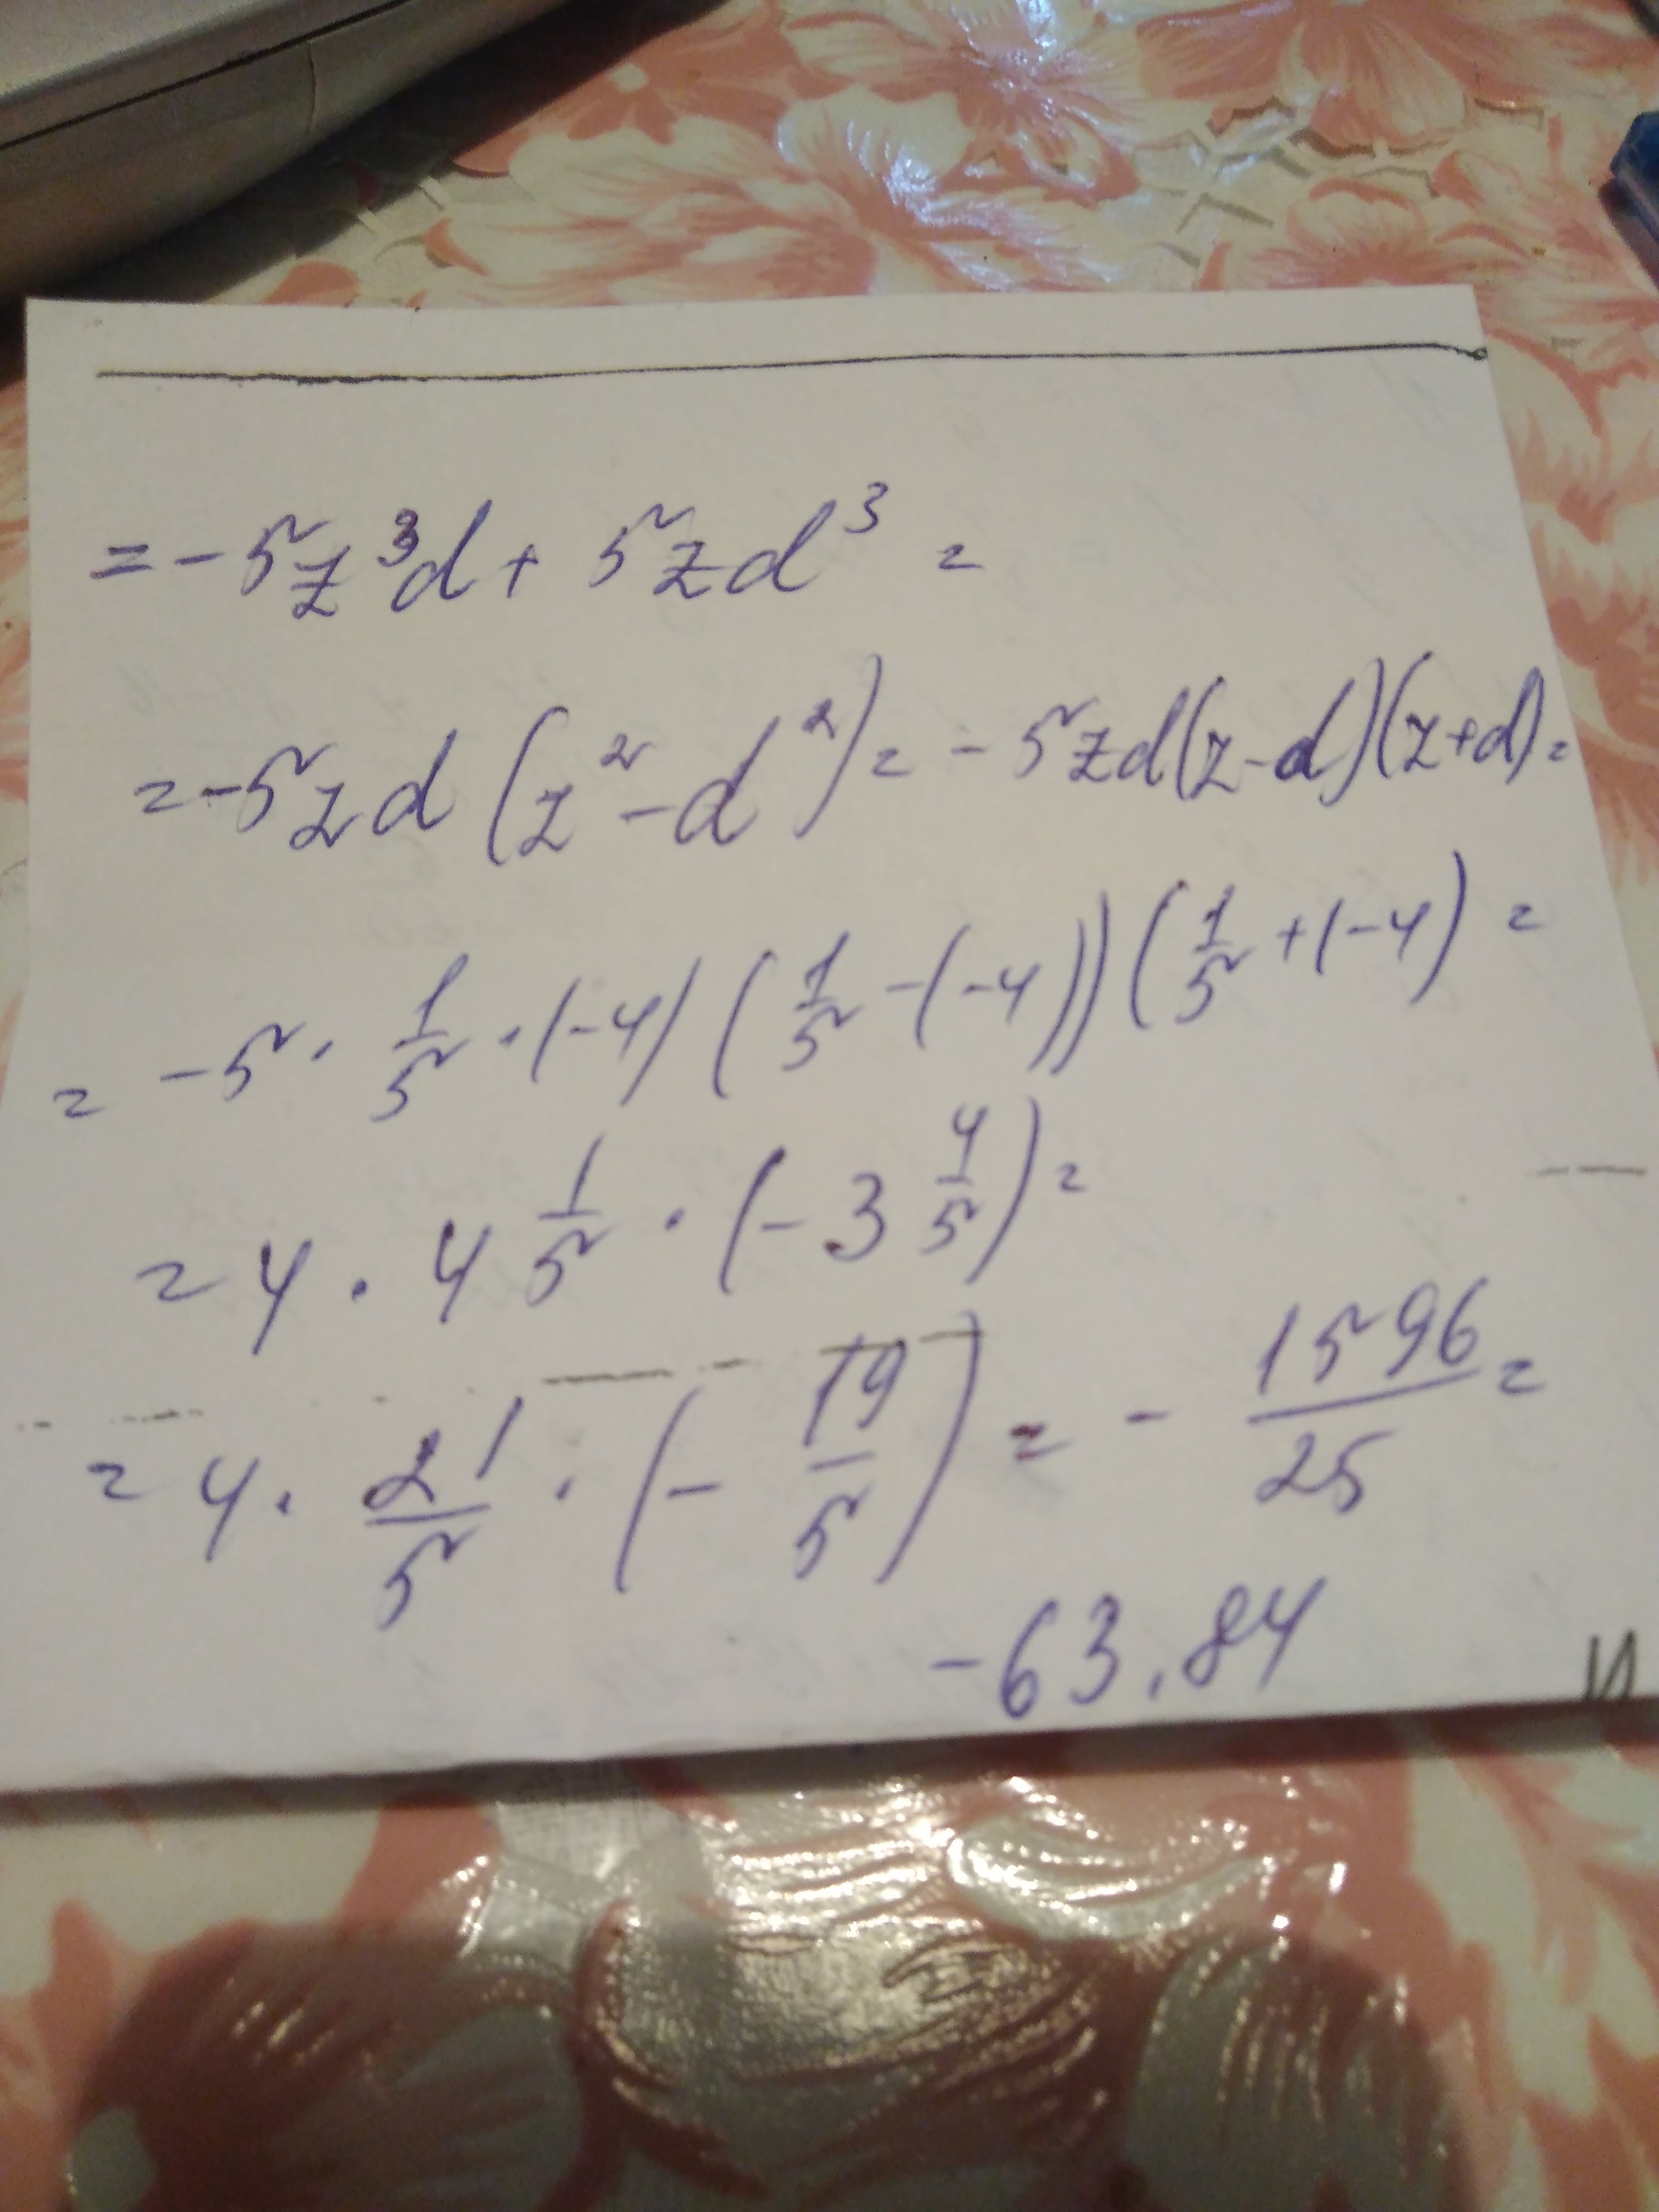 = -5z³d + 5zd³ =
= -5zd (z² - d²) = -5zd(z-d)(z+d) =
= -5 · 1/5 · (-4) (1/5 - (-4)) (1/5 + (-4) =
= 4 · 4 1/5 · (-3 4/5) =
= 4 · 21/5 · (- 19/5) = - 1596/25 =
-63.84